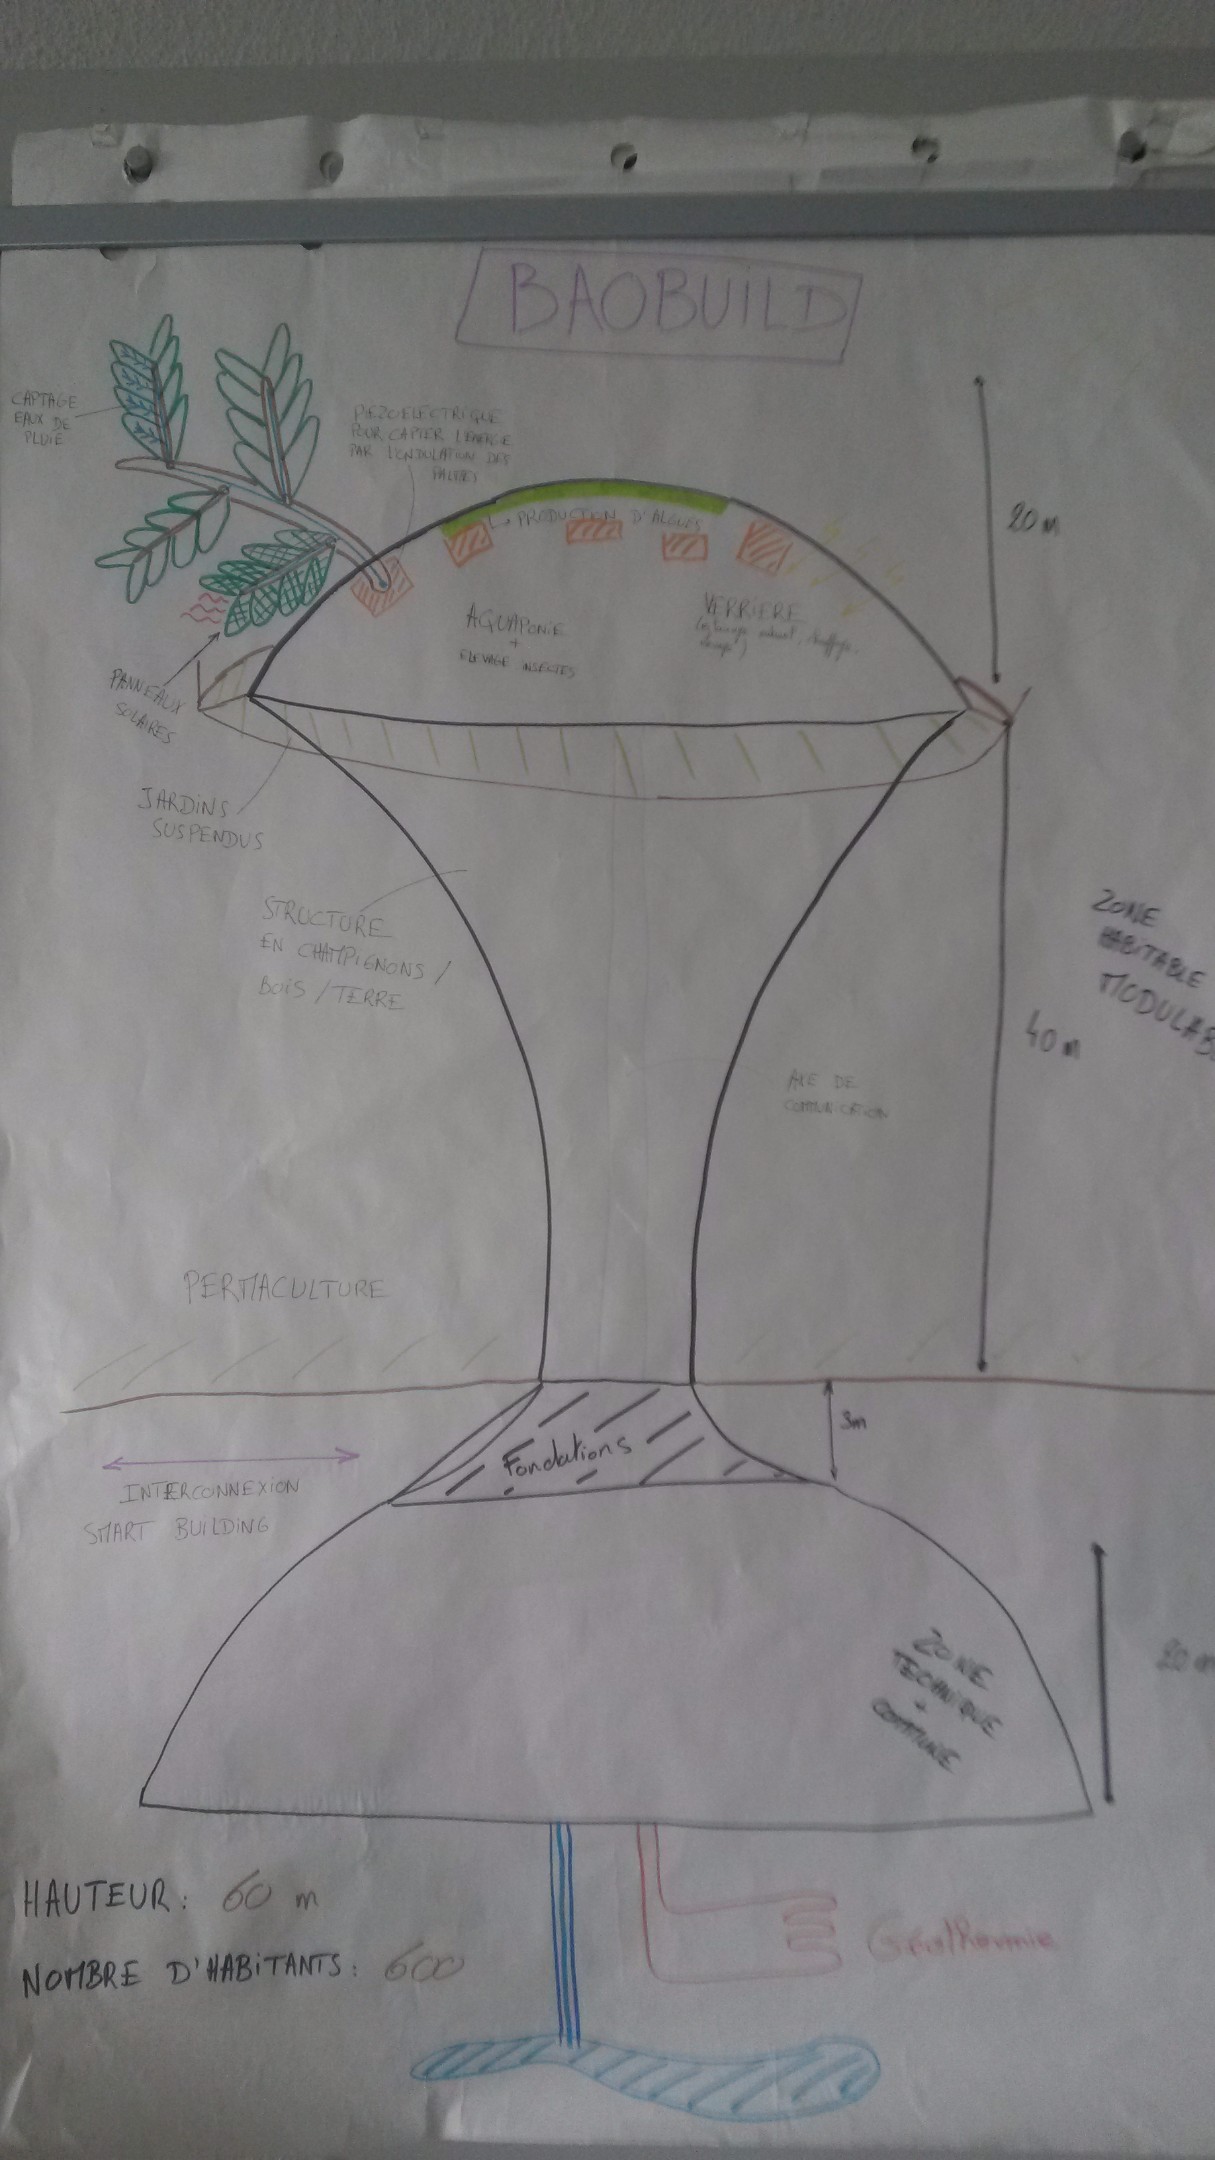 BAOBUILD
CAPTAGE
EAUX DE
PLUIE
PIEZOELECTRIQUE
POUR CAPTER L'ENERGIE
PAR L'ONDULATION DES
PALMES
20 m
PRODUCTION D'ALGUES
AQUAPONIE
+
ELEVAGE INSECTES
VERRIERE
PANNEAUX
SOLAIRES
JARDINS
SUSPENDUS
STRUCTURE
EN CHAMPIGNONS /
BOIS / TERRE
ZONE
HABITABLE
MODULAB
40 m
AXE DE
COMMUNICATION
PERMACULTURE
3m
Fondations
INTERCONNEXION
SMART BUILDING
20 m
ZONE
TECHNIQUE
+
COMMUNE
HAUTEUR: 60 m
NOMBRE D'HABITANTS: 600
Géothermie